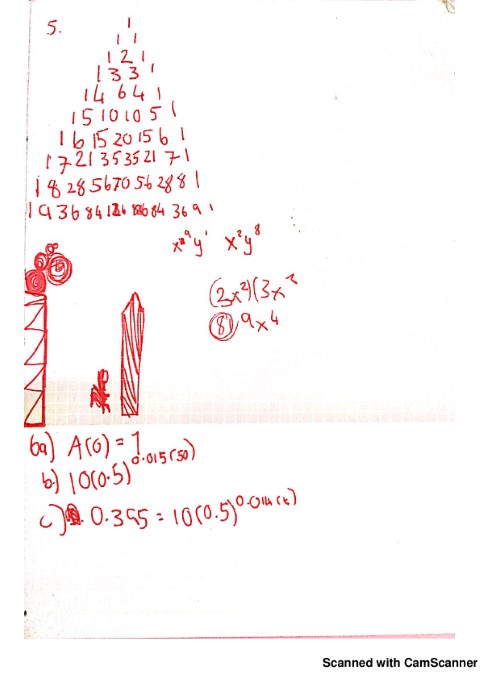 5.
1
1 1
1 2 1
1 3 3 1
1 4 6 4 1
1 5 10 10 5 1
1 6 15 20 15 6 1
1 7 21 35 35 21 7 1
1 8 28 56 70 56 28 8 1
1 9 36 84 126 126 84 36 9 1
y¹ x²y⁸
(2x²)(3x
8 9x⁴
6a) A(0) = 1
b) 10(0.5)^0.015(50)
c) 0.395 = 10(0.5)^0.014(t)
Scanned with CamScanner